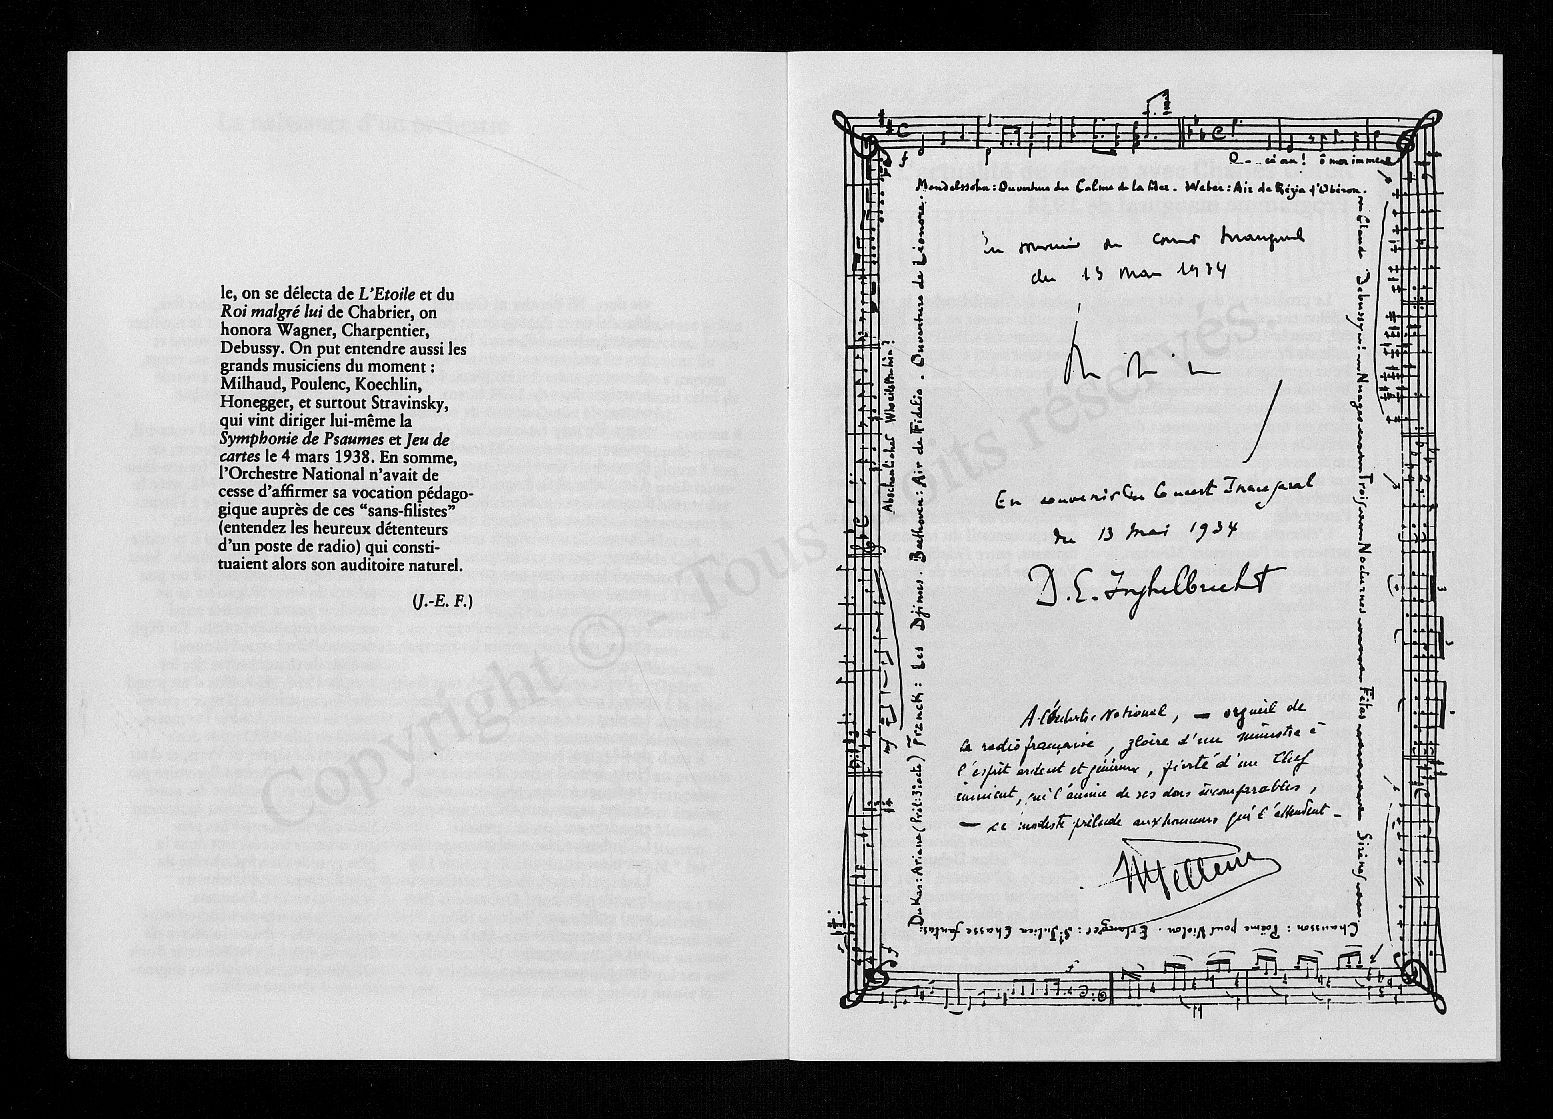 le, on se délecta de L'Etoile et du
Roi malgré lui de Chabrier, on
honora Wagner, Charpentier,
Debussy. On put entendre aussi les
grands musiciens du moment :
Milhaud, Poulenc, Koechlin,
Honegger, et surtout Stravinsky,
qui vint diriger lui-même la
Symphonie de Psaumes et Jeu de
cartes le 4 mars 1938. En somme,
l'Orchestre National n'avait de
cesse d'affirmer sa vocation pédago-
gique auprès de ces “sans-filistes”
(entendez les heureux détenteurs
d'un poste de radio) qui consti-
tuaient alors son auditoire naturel.
(J.-E. F.)
Copyright © - Tous droits réservés.
O ... céan! ô mer immense
Mendelssohn : Ouverture du Calme de la Mer . Weber : Air de Rezia d'Obéron.
Claude Debussy Nuages Trois Nocturnes Fêtes Sirènes
Chausson : Poème pour Violon . Erlanger : St Julien Chasse fantas:
Dukas : Ariane (Prél: 3e acte) Franck : Les Djinns . Beethoven : Air de Fidelio . Ouverture de Léonore.
Abscheulicher Wo eilst du hin?
En souvenir du concert inaugural
du 13 mai 1934
En souvenir du Concert Inaugural
du 13 Mai 1934
D. E. Inghelbrecht
A l'Orchestre National, — orgueil de
la radio française, gloire d'un ministre à
l'esprit ardent et généreux, fierté d'un Chef
éminent, qui l'anime de ses dons incomparables,
— ce modeste prélude aux honneurs qui l'attendent —